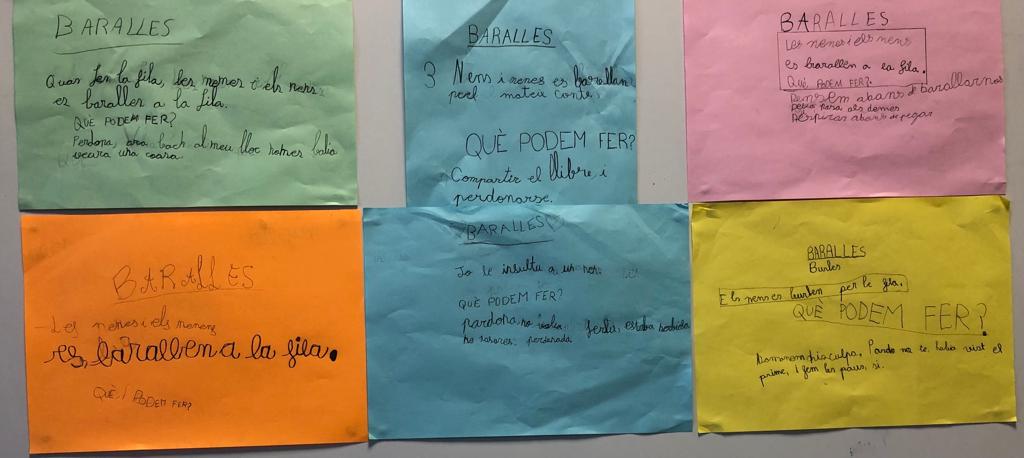 BARALLES
Quan fem la fila, les nenes i els nens
es barallen a la fila.
QUE PODEM FER?
Perdona, ara bach al meu lloc nomes balia
veura una coara
BARALLES
3 Nens i nenes es barallan
pel mateu conte.
QUÈ PODEM FER?
Compartir el llibre, i
perdonarse.
BARALLES
Les nenes i els nens
es barallen a la fila.
QUÈ PODEM FER?
Pensem abans d barallarnos
para als demes
Respirar abans de pegar
BARALLES
-Les nenes i els nenens
es, barallen a la fila.
QUÈ, PODEM FER?
BARALLES
Jo le insultu a un nen.
QUÈ PODEM FER?
pardona, no volia ferlu, estaba
no
BARALLES
Burles
Els nens es burlen per le fila.
QUÈ PODEM FER?
culpa. Pardo no te habia vist el
prime, i fem les paus, si.